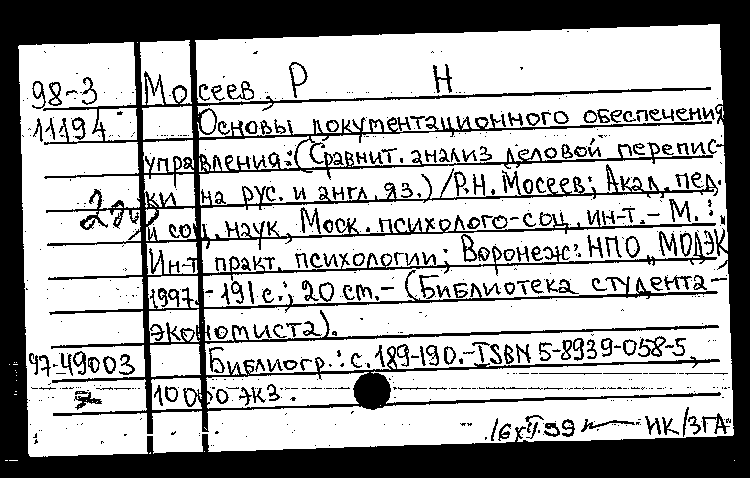 98-3 Мосеев, Р Н
11194 Основы документационного обеспечения
управления: (Сравнит. анализ деловой перепис-
ки на рус. и англ. яз.) / Р.Н. Мосеев; Акад. пед.
и соц. наук, Моск. психолого-соц. ин-т. - М. :
Ин-т практ. психологии; Воронеж: НПО „МОДЭК
1997. - 191 с.; 20 см. - (Библиотека студента-
экономиста).
97-49003 Библиогр.: с. 189-190. - ISBN 5-8939-058-5,
10000 экз.
ИК/ЗГА